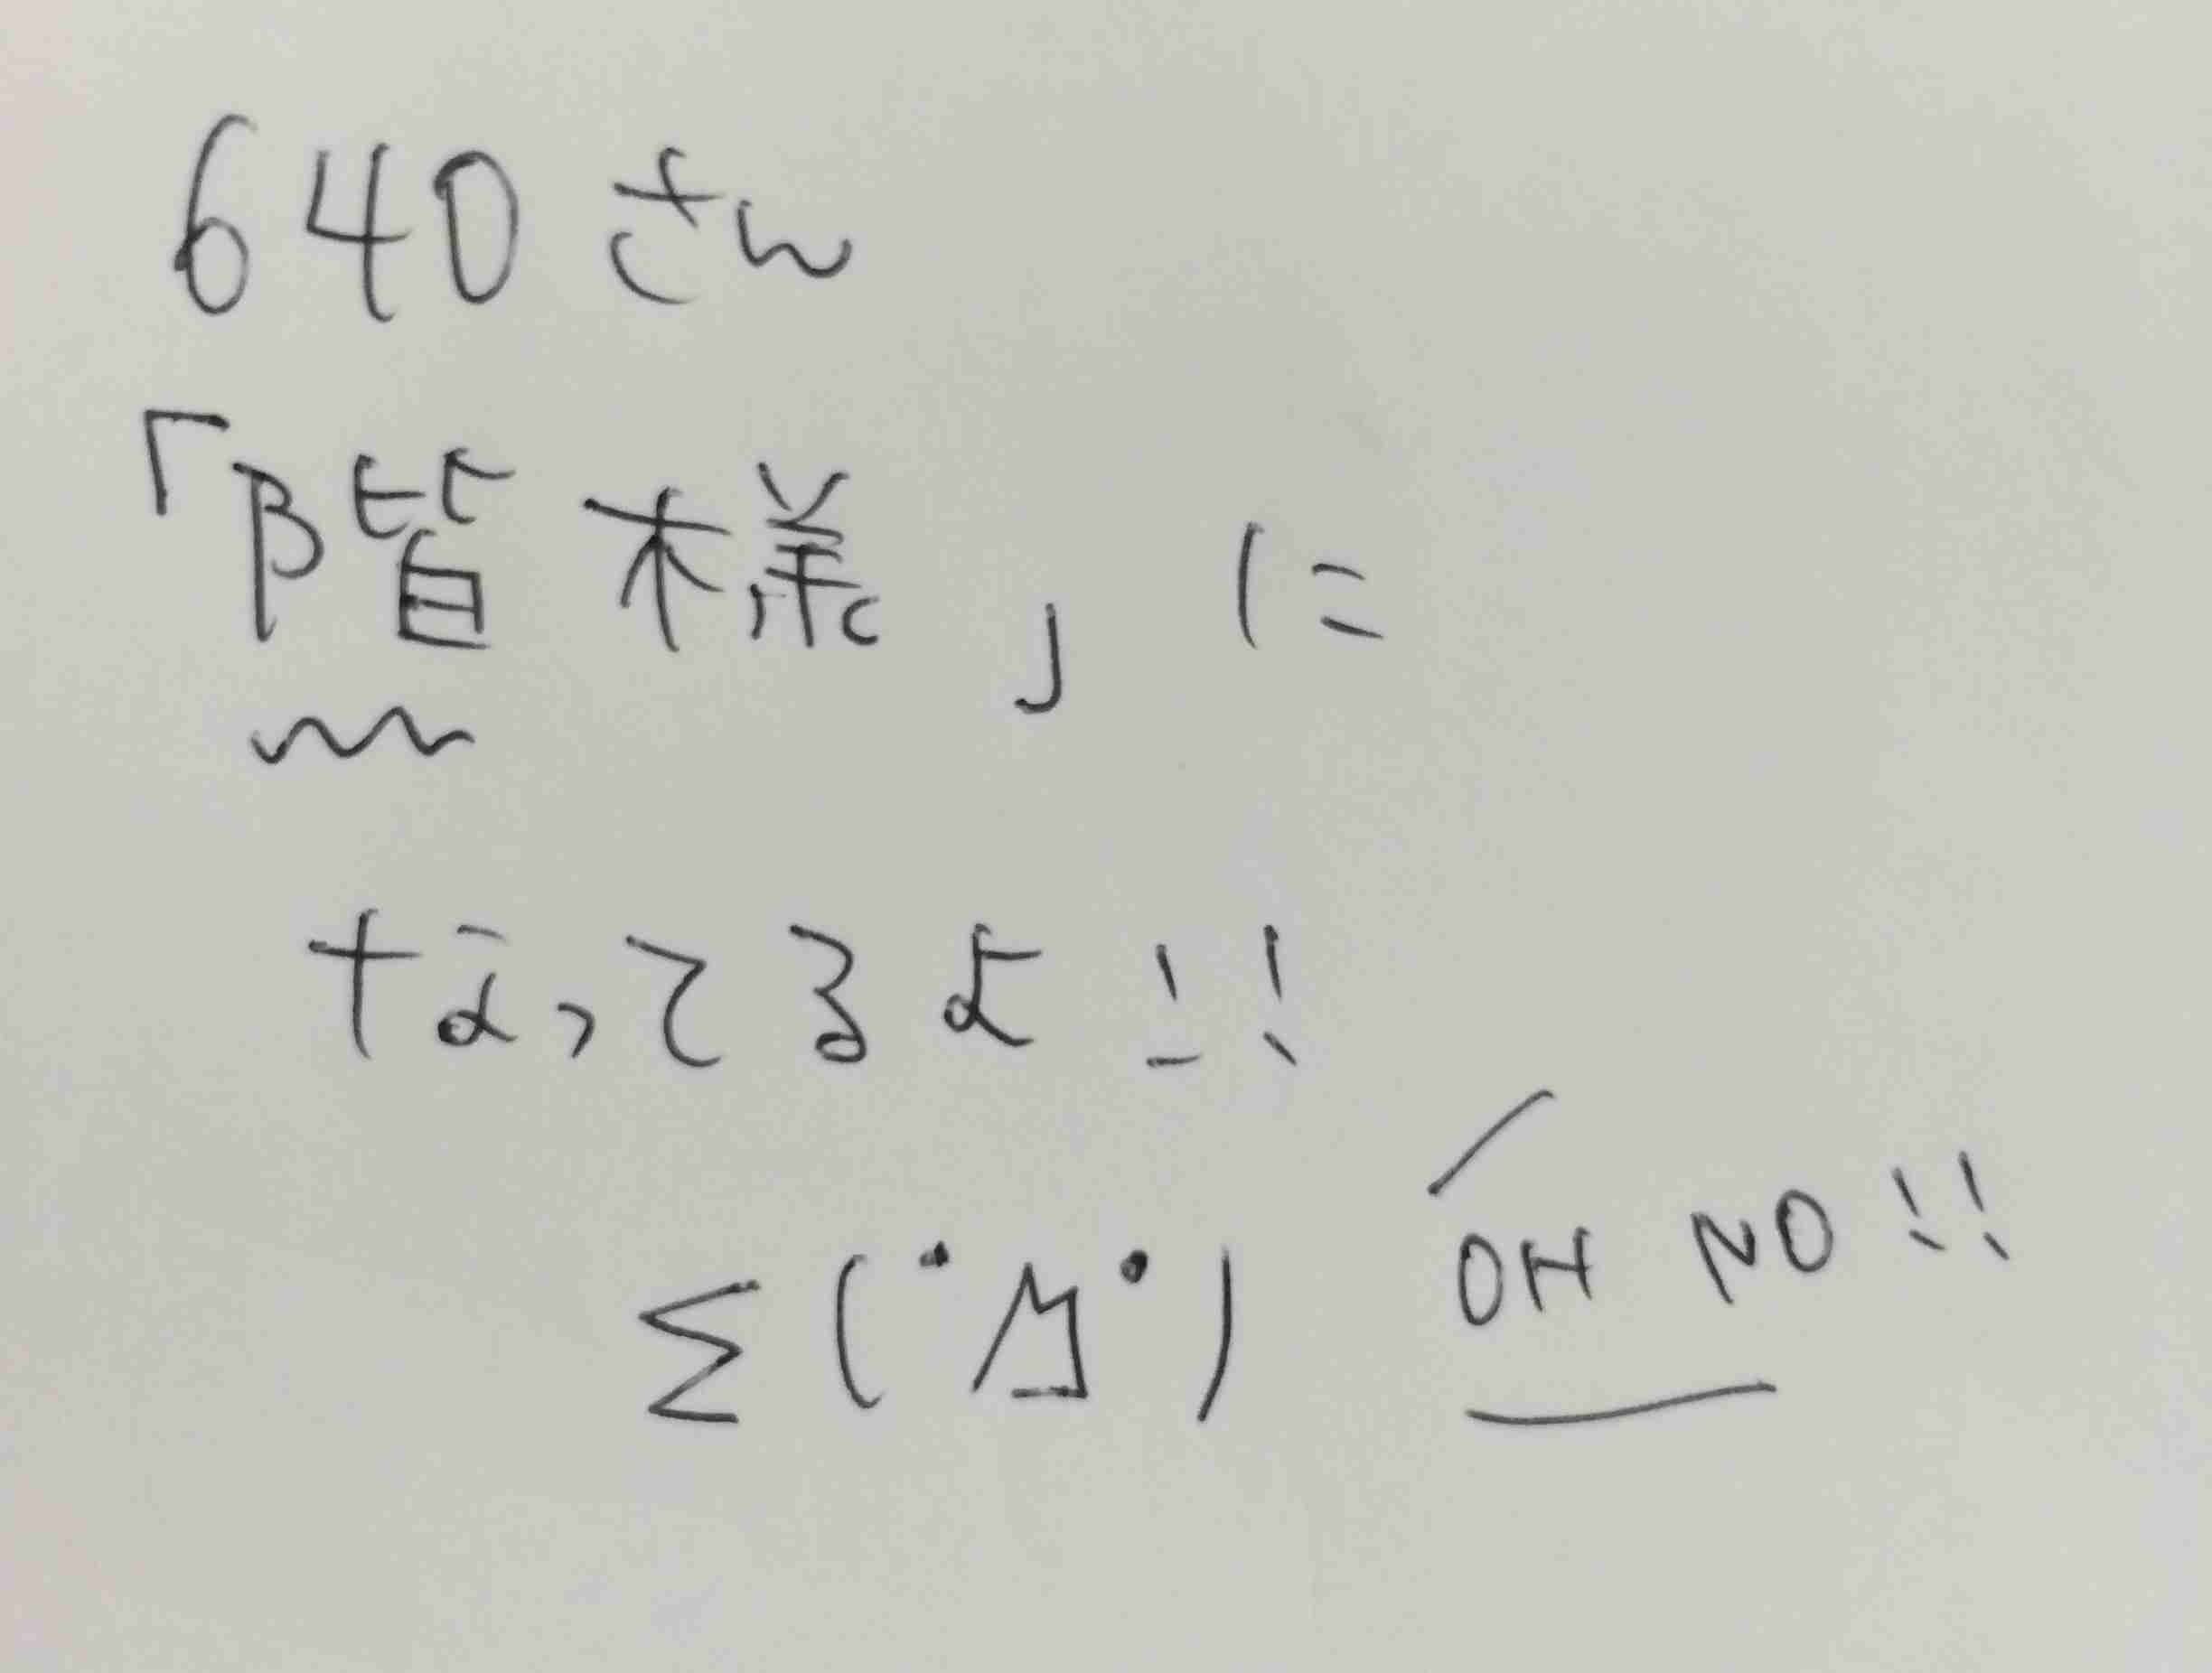 640さん
「階様」に
なってるよ!!
Σ(ﾟДﾟ) OH NO!!